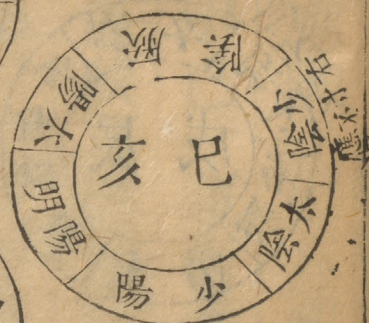 巳亥
厥陰
少陰
太陰
少陽
陽明
太陽
右寸不應